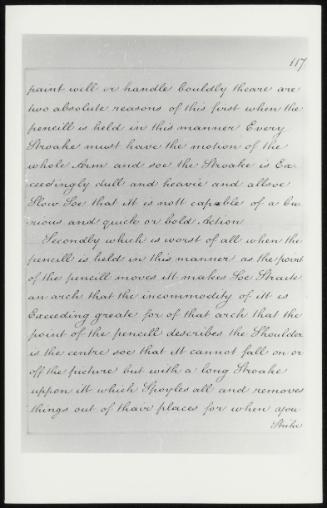 117
paint will or handle bouldly theare are
two absolute reasons of this first when the
pencill is held in this manner Every
Stroake must have the motion of the
whole Arm and soe the Stroake is Ex-
ceedingly dull and heavie and allsoe
Slow Soe that it is nott capable of a cu-
rious and quick or bold Action
Secondly which is worst of all when the
pencill is held in this manner as the point
of the pencill moves itt makes Soe Straite
an arch that the incommodity of itt is
Exceeding greate for of that arch that the
point of the pencill describes the Shoulder
is the centre soe that it cannot fall on or
off the picture but with a long Stroake
uppon itt which Spoyles all and removes
things out of thair places for when you